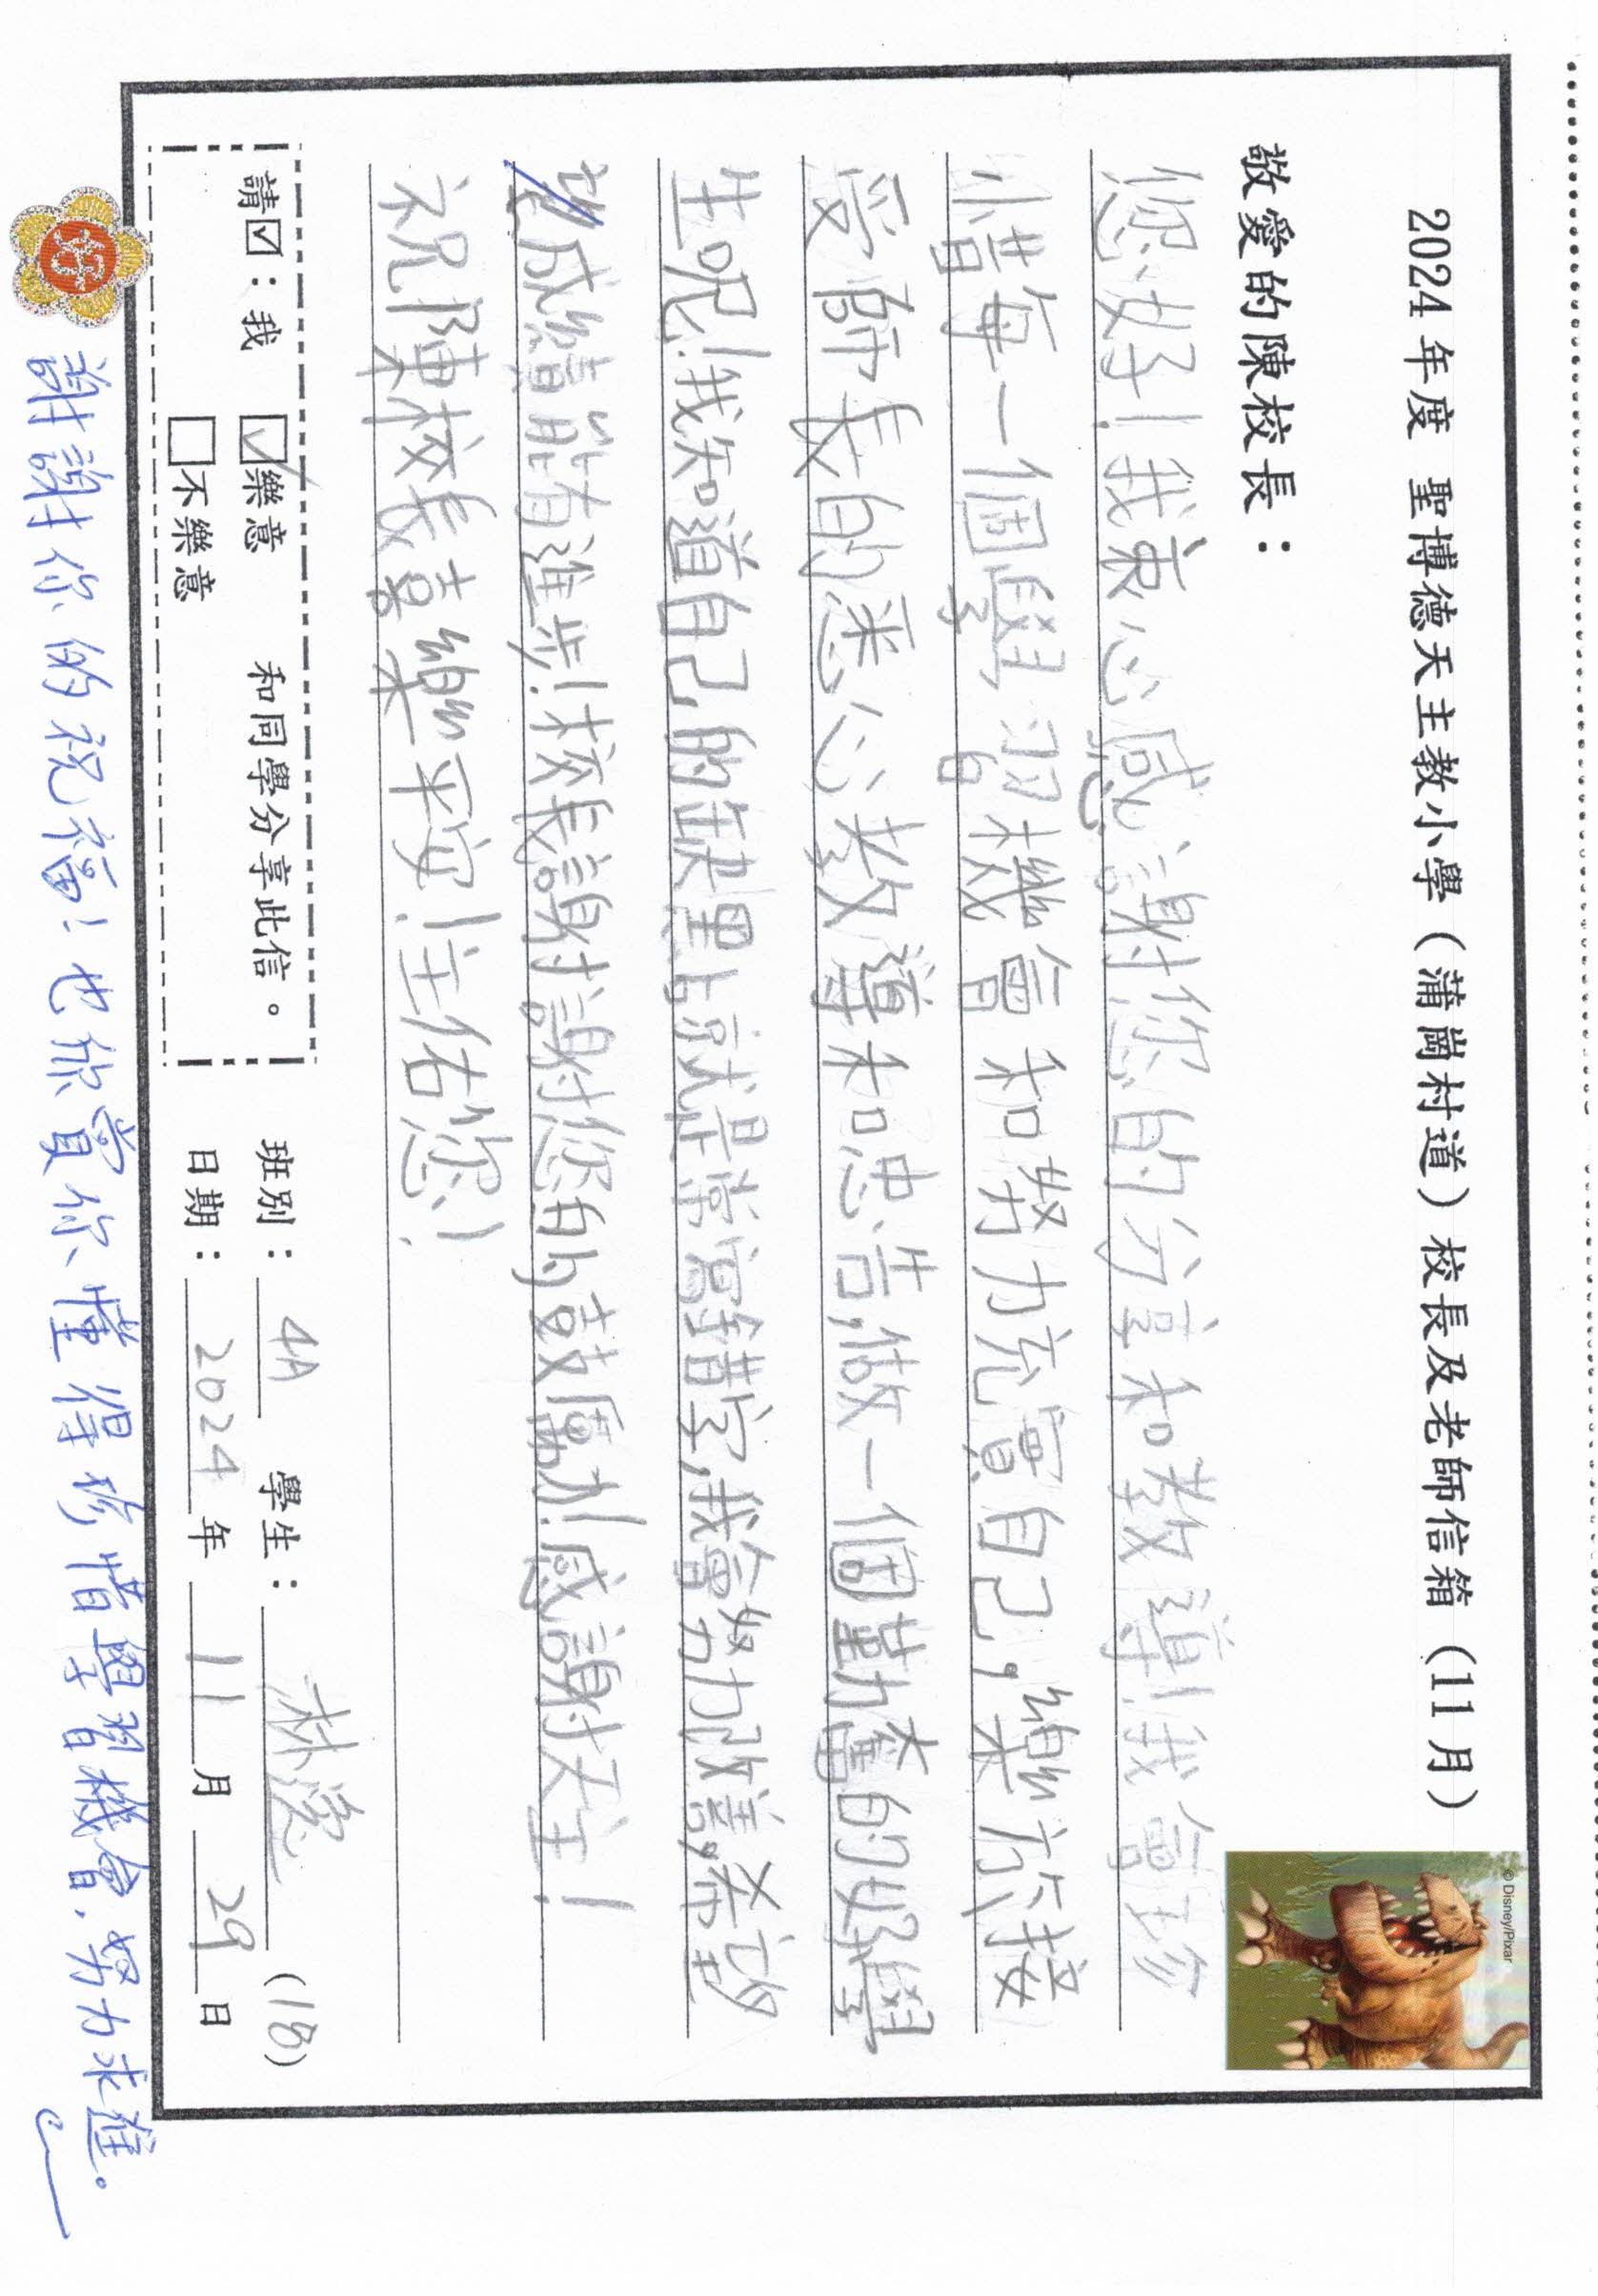 2024年度 聖博德天主教小學（蒲崗村道）校長及老師信箱（11月）
© Disney/Pixar
敬愛的陳校長：
您好！我衷心感謝您的分享和教導！我會珍
惜每一個學習機會和努力充實自己，樂於接
受師長的悉心教導和忠告，做一個勤奮的好學
生呢！我知道自己的缺點就是常寫錯字，我會努力改善，希望
望成績能有進步！校長謝謝您的鼓勵！感謝天主！
祝陳校長喜樂平安！主佑您！
請☑：我 ☑樂意 和同學分享此信。
□不樂意
班別：4A 學生：林瀅 (18)
日期：2024年11月29日
謝謝你的祝福！也欣賞你懂得珍惜學習機會，努力求進。